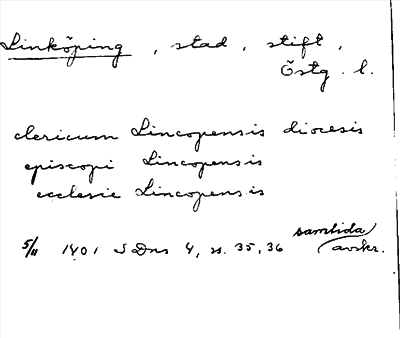 Linköping , stad , stift ,
Östg. l.
clericum Lincopensis diocesis
episcopi Lincopensis
ecclesie Lincopensis
5/11 1401 SDns 4, s. 35, 36 samtida avskr.